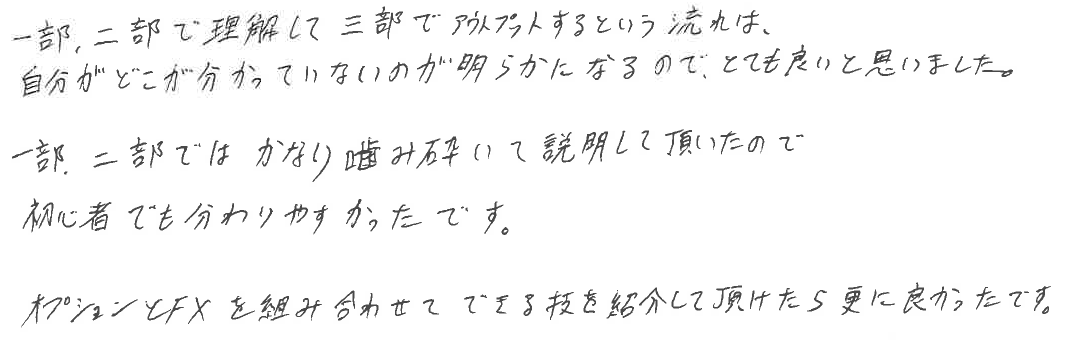 一部、二部で理解して三部でアウトプットするという流れは、
自分がどこが分かっていないのが明らかになるので、とても良いと思いました。
一部、二部ではかなり噛み砕いて説明して頂いたので
初心者でも分わりやすかったです。
オプションとFXを組み合わせてできる技を紹介して頂けたら更に良かったです。